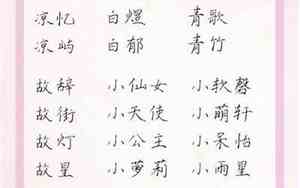 凉忆 白煜 青歌
凉屿 白郁 青竹
故辞 小仙女 小软馨
故街 小天使 小萌轩
故灯 小公主 小呆怡
故星 小萝莉 小雨星